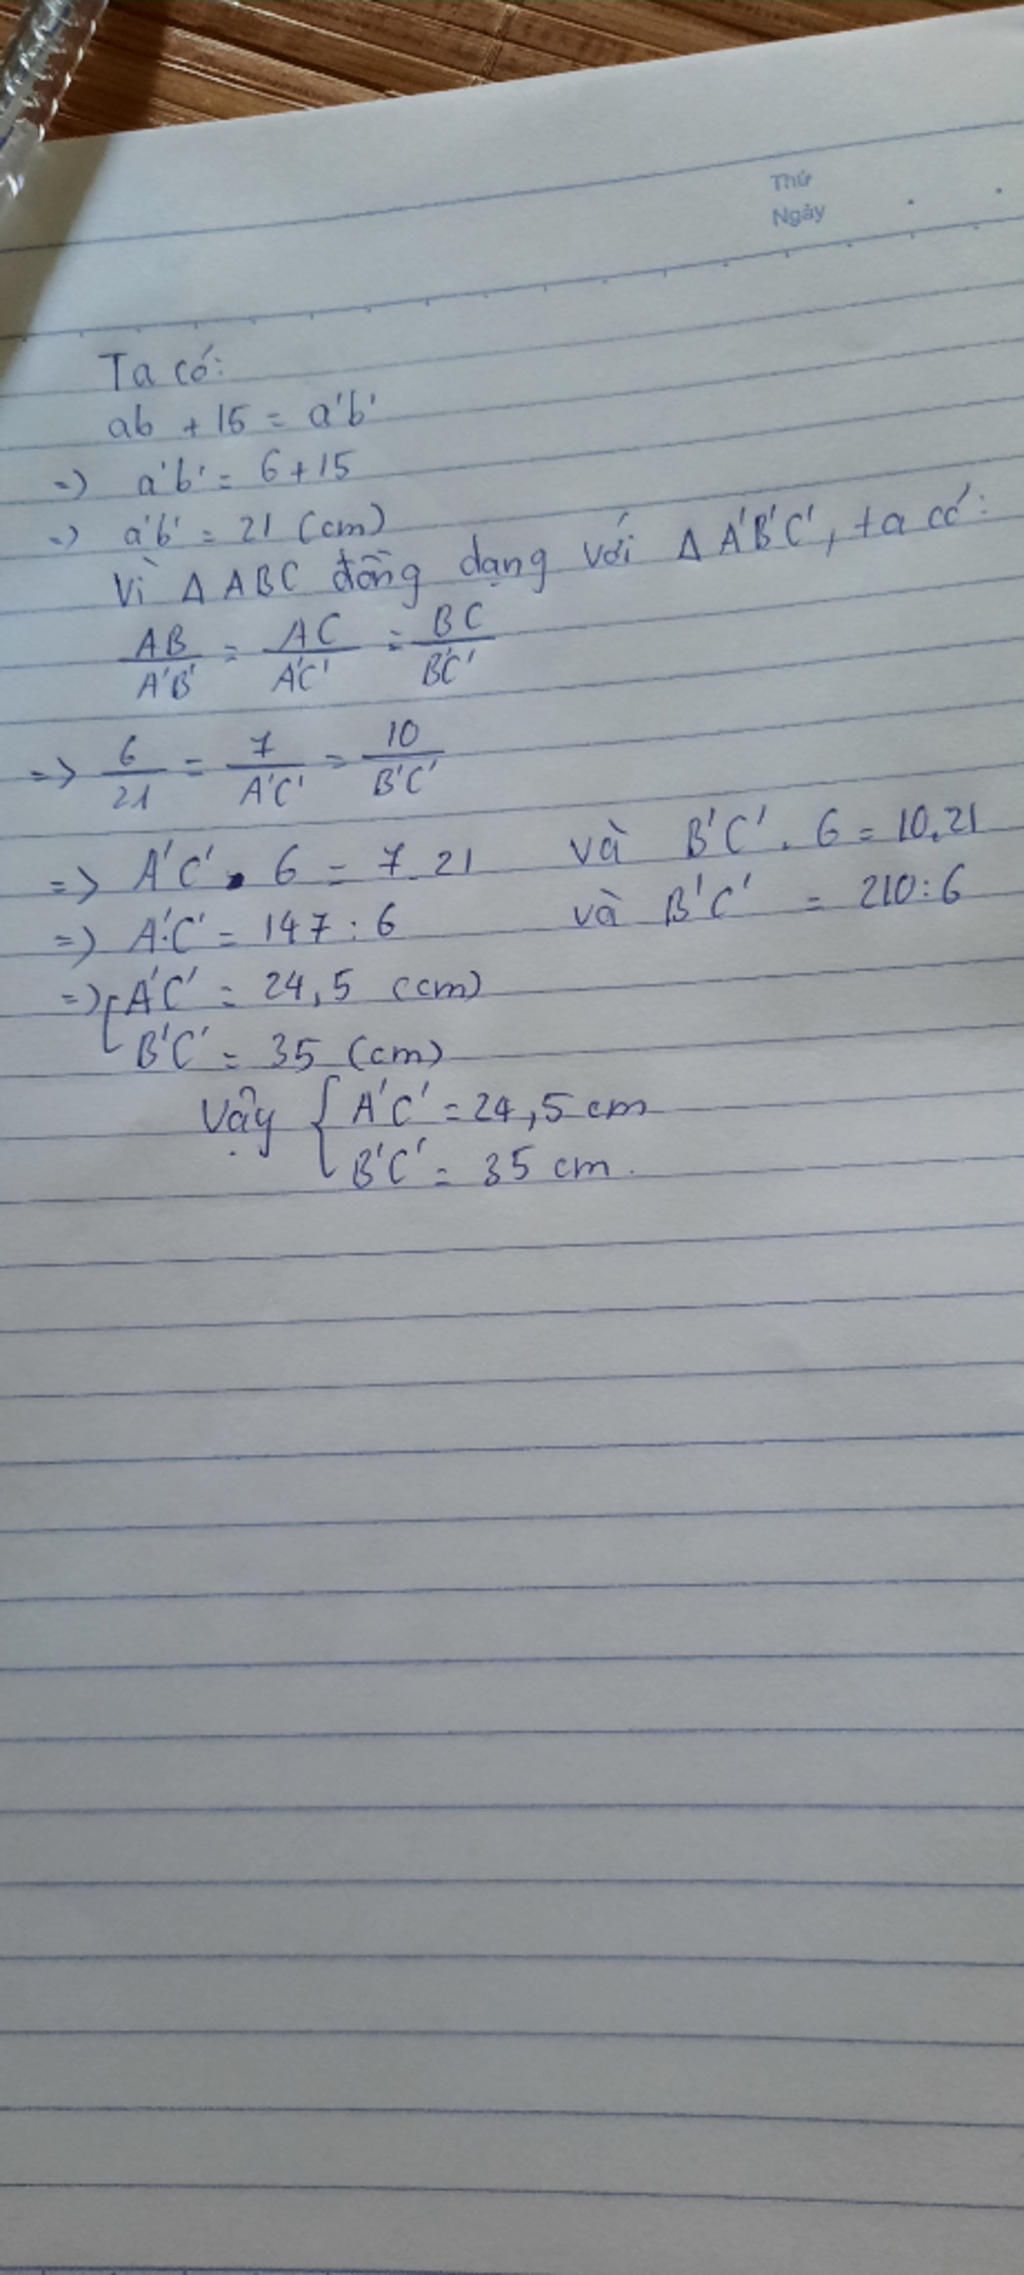 Thứ
Ngày
Ta có:
ab + 15 = a'b'
=) a'b' = 6+15
=) a'b' = 21 (cm)
Vì Δ ABC đồng dạng với Δ A'B'C', ta có:
AB/A'B' = AC/A'C' = BC/B'C'
=> 6/21 = 7/A'C' = 10/B'C'
=> A'C' . 6 = 7.21 và B'C' . 6 = 10.21
=) A'C' = 147 : 6 và B'C' = 210:6
=) { A'C' = 24,5 (cm)
B'C' = 35 (cm)
Vậy { A'C' = 24,5 cm
B'C' = 35 cm.